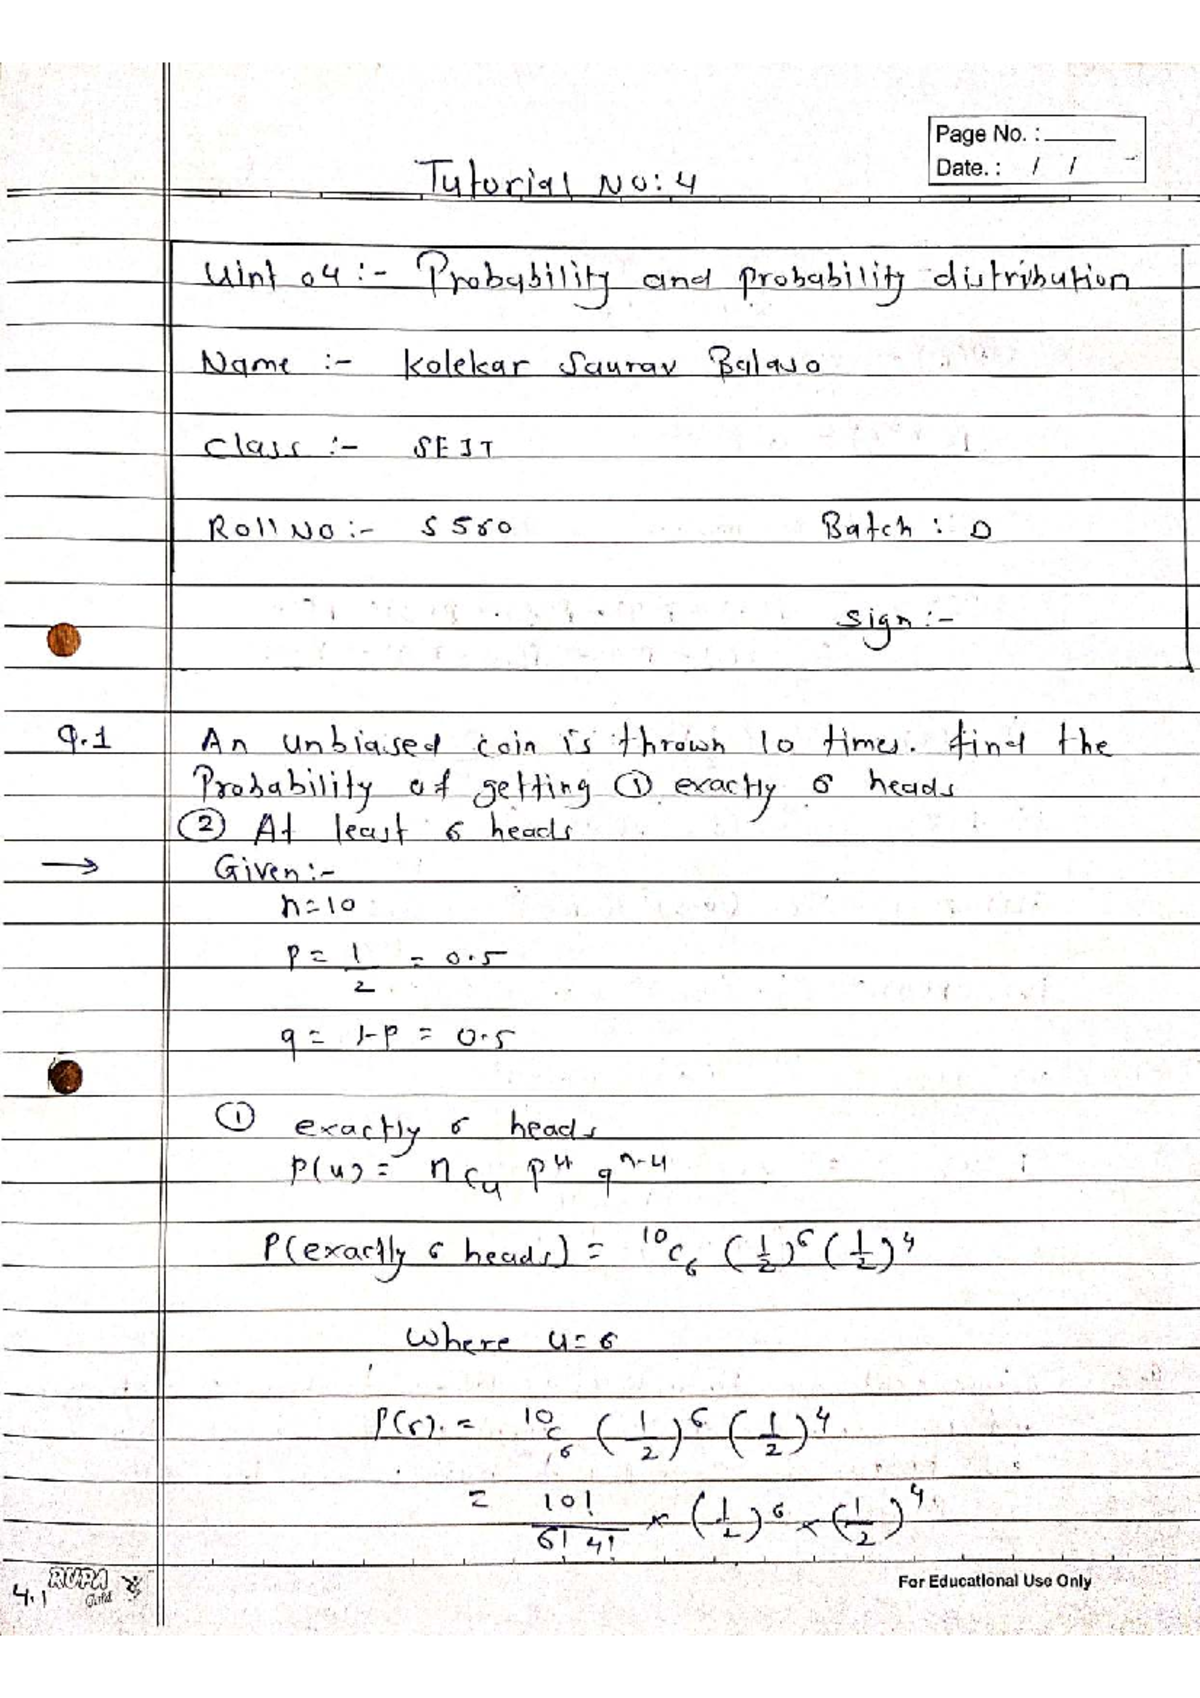 Page No. :
Date. : / /
Tutorial No: 4
Uint 04 :- Probability and probability distribution
Name :- Kolekar Saurav Balaso
Class :- SEIT
Roll No :- S560 Batch : D
Sign :-
Q.1 An unbiased coin is thrown 10 times. find the
Probability of getting ① exactly 6 heads
② At least 6 heads
→ Given :-
n=10
p = 1/2 = 0.5
q = 1-p = 0.5
① exactly 6 heads
P(u) = nCu p^u q^n-u
P(exactly 6 heads) = 10C6 (1/2)^6 (1/2)^4
Where u=6
P(6) = 10C6 (1/2)^6 (1/2)^4
= 10!/6! 4! × (1/2)^6 × (1/2)^4
RUPA
Gold
4.1
For Educational Use Only